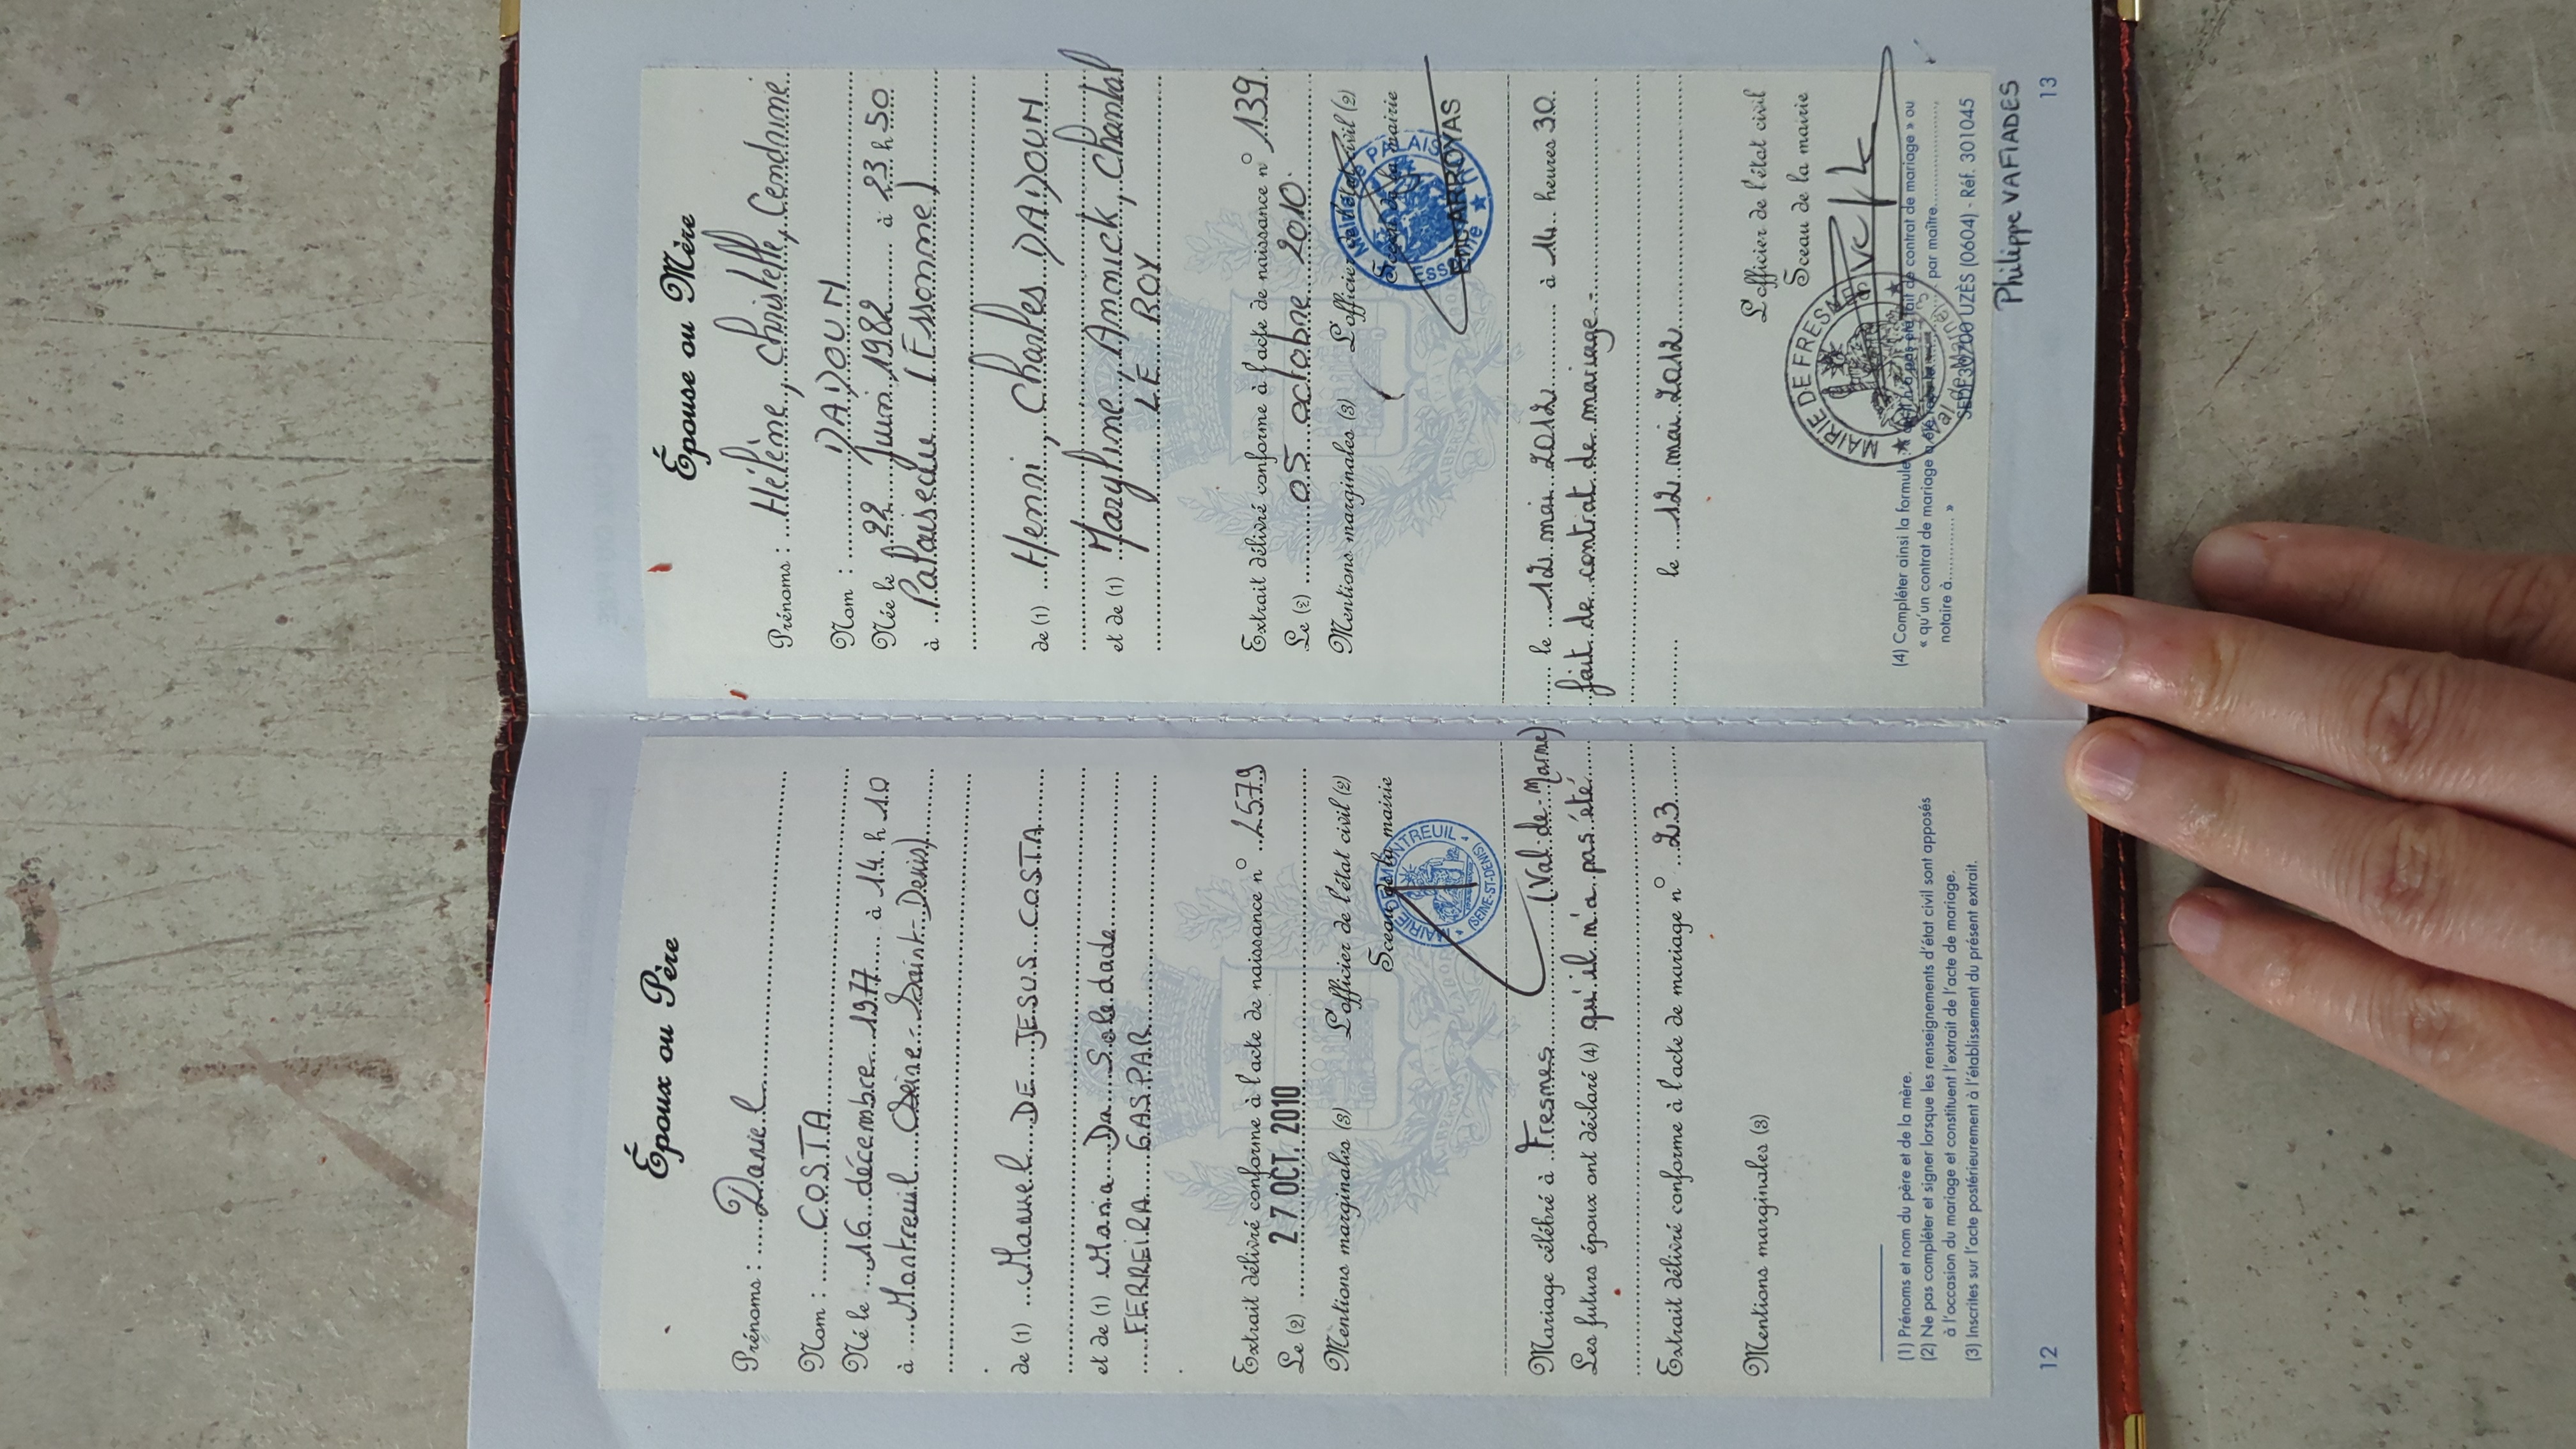 Époux ou Père
Prénoms : Daniel
Nom : COSTA
Né le 16 décembre 1977 à 14 h 10
à Montreuil (Seine-Saint-Denis)
de (1) Manuel DE JESUS COSTA
et de (1) Maria Da Soledade
FERREIRA GASPAR
Extrait délivré conforme à l'acte de naissance n° 2579
Le (2) 27 OCT. 2010
Mentions marginales (3) L'officier de l'état civil (2)
Sceau de la mairie
MAIRIE DE MONTREUIL
(SEINE-ST-DENIS)
Mariage célébré à Fresnes (Val-de-Marne)
Les futurs époux ont déclaré (4) qu'il n'a pas été
Extrait délivré conforme à l'acte de mariage n° 23
Mentions marginales (3)
(1) Prénoms et nom du père et de la mère.
(2) Ne pas compléter et signer lorsque les renseignements d'état civil sont apposés
à l'occasion du mariage et constituent l'extrait de l'acte de mariage.
(3) Inscrites sur l'acte postérieurement à l'établissement du présent extrait.
12
Épouse ou Mère
Prénoms : Hélène, Christelle, Cendrine
Nom : DAHOUN
Née le 22 Juin 1982 à 23 h 50
à Palaiseau (Essonne)
de (1) Henri, Charles DAHOUN
et de (1) Maryline, Annick, Chantal
LE ROY
Extrait délivré conforme à l'acte de naissance n° 139
Le (2) 05 octobre 2010
Mentions marginales (3) L'officier de l'état civil (2)
Sceau de la mairie
ARROYAS
le 12 mai 2012 à 14 heures 30
fait de contrat de mariage.-
le 12 mai 2012
L'officier de l'état civil
Sceau de la mairie
MAIRIE DE FRESNES
(4) Compléter ainsi la formule : « qu'il n'a pas été fait de contrat de mariage » ou
« qu'un contrat de mariage a été reçu le par maître
notaire à »
SEDI 30700 UZÈS (0604) - Réf. 301045
Philippe VAFIADES
13